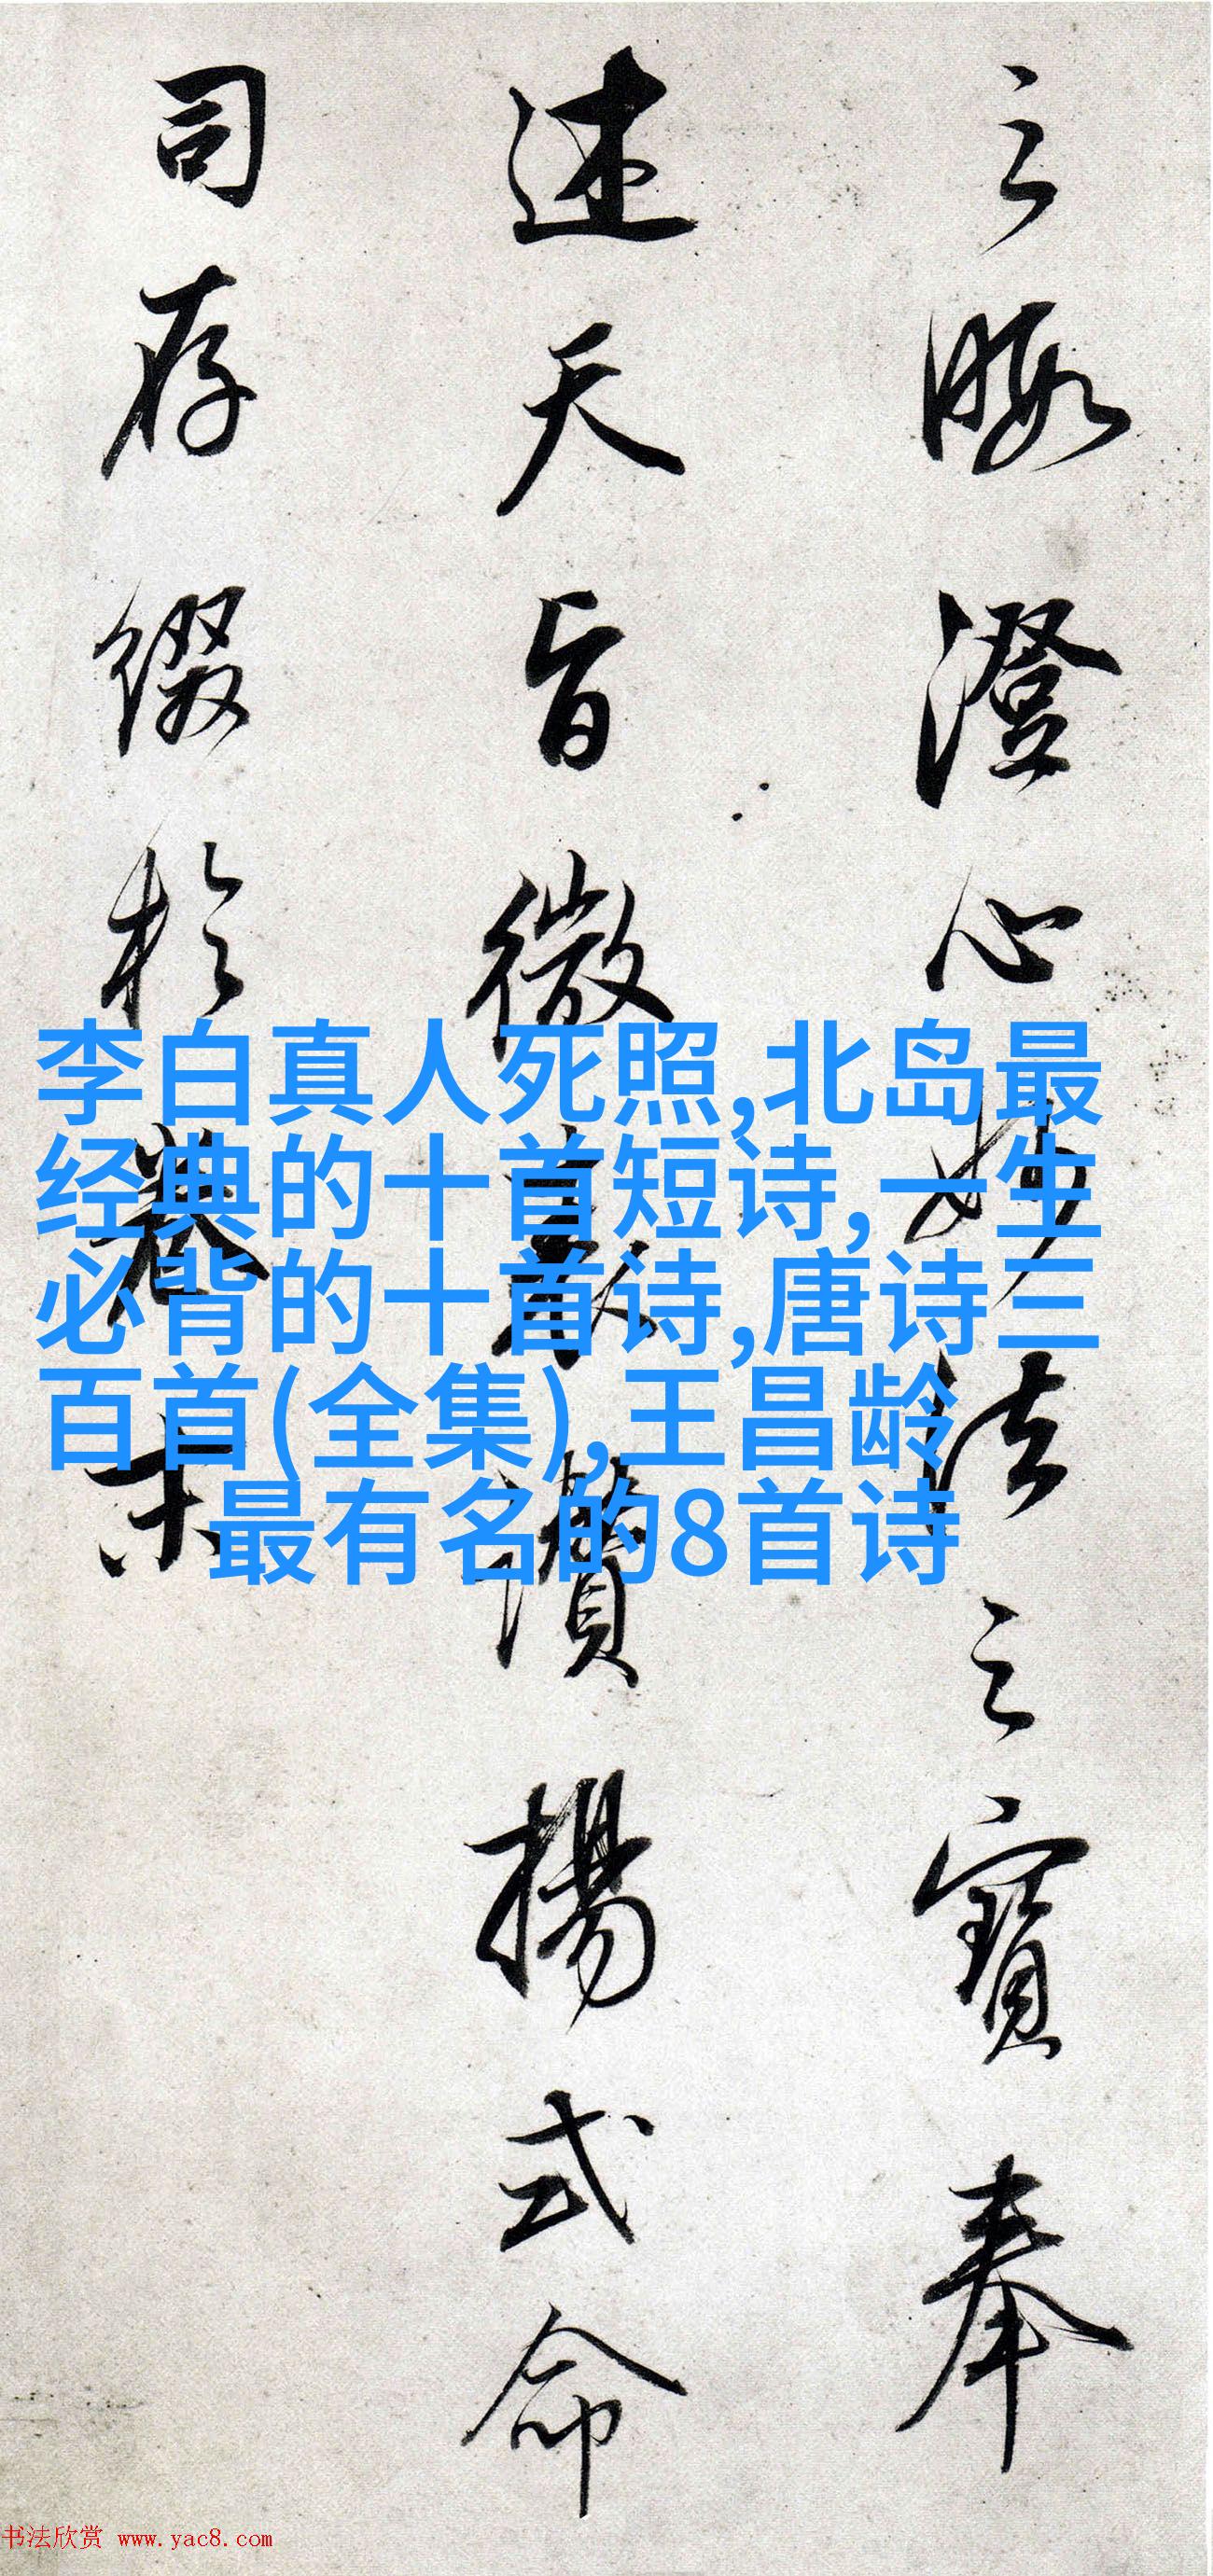 之暇澄心妙法之寶奉
述天旨微表讚揚式命
司存缀於卷末
李白真人死照,北岛最
经典的十首短诗,一生
必背的十首诗,唐诗三
百首(全集),王昌龄
最有名的8首诗
书法欣赏 www.yac8.com